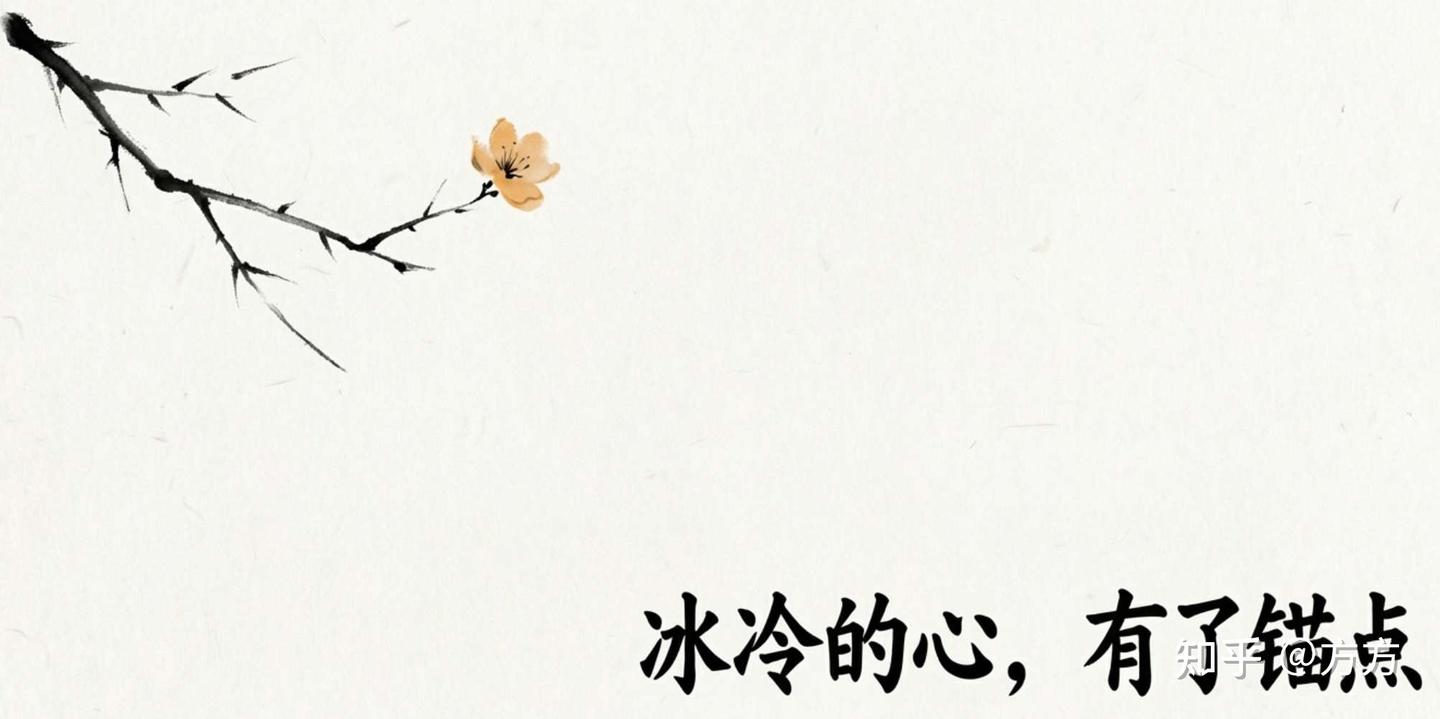 冰冷的心，有了锚点
知乎 @方方